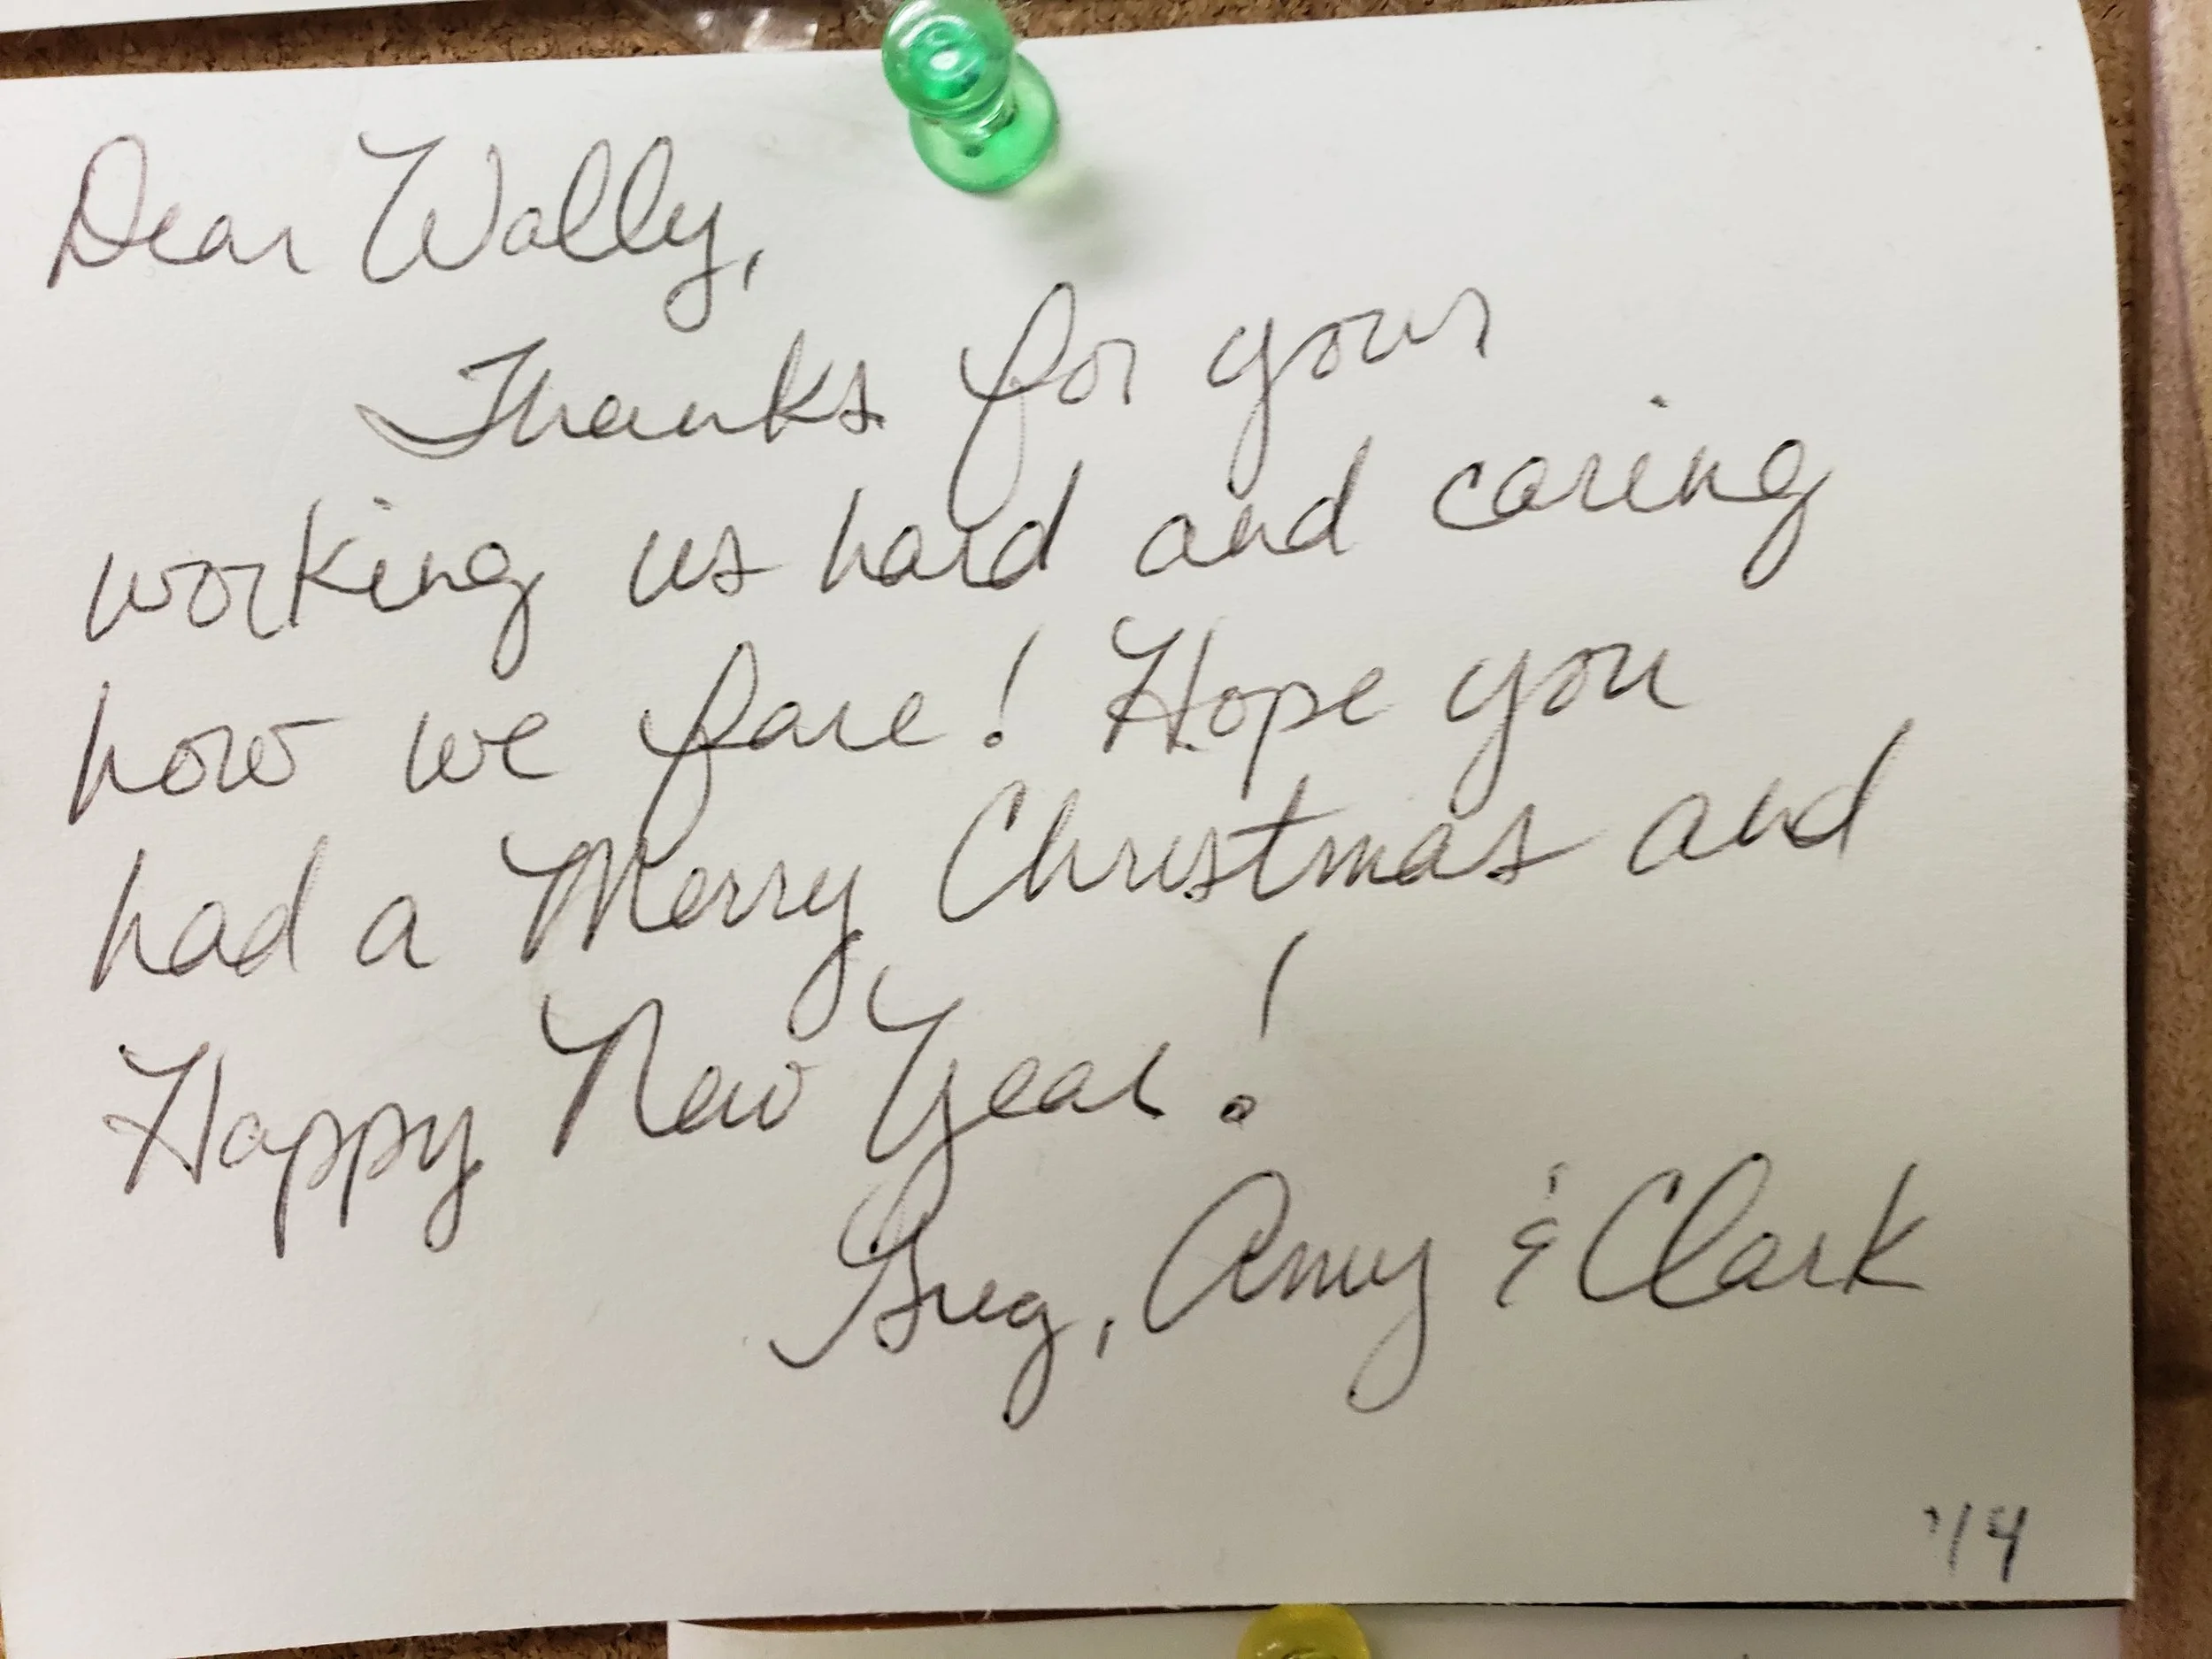 Dear Wally,
Thanks for your
working us hard and caring
how we fare! Hope you
had a Merry Christmas and
Happy New Year!
Greg, Amy & Clark
'14